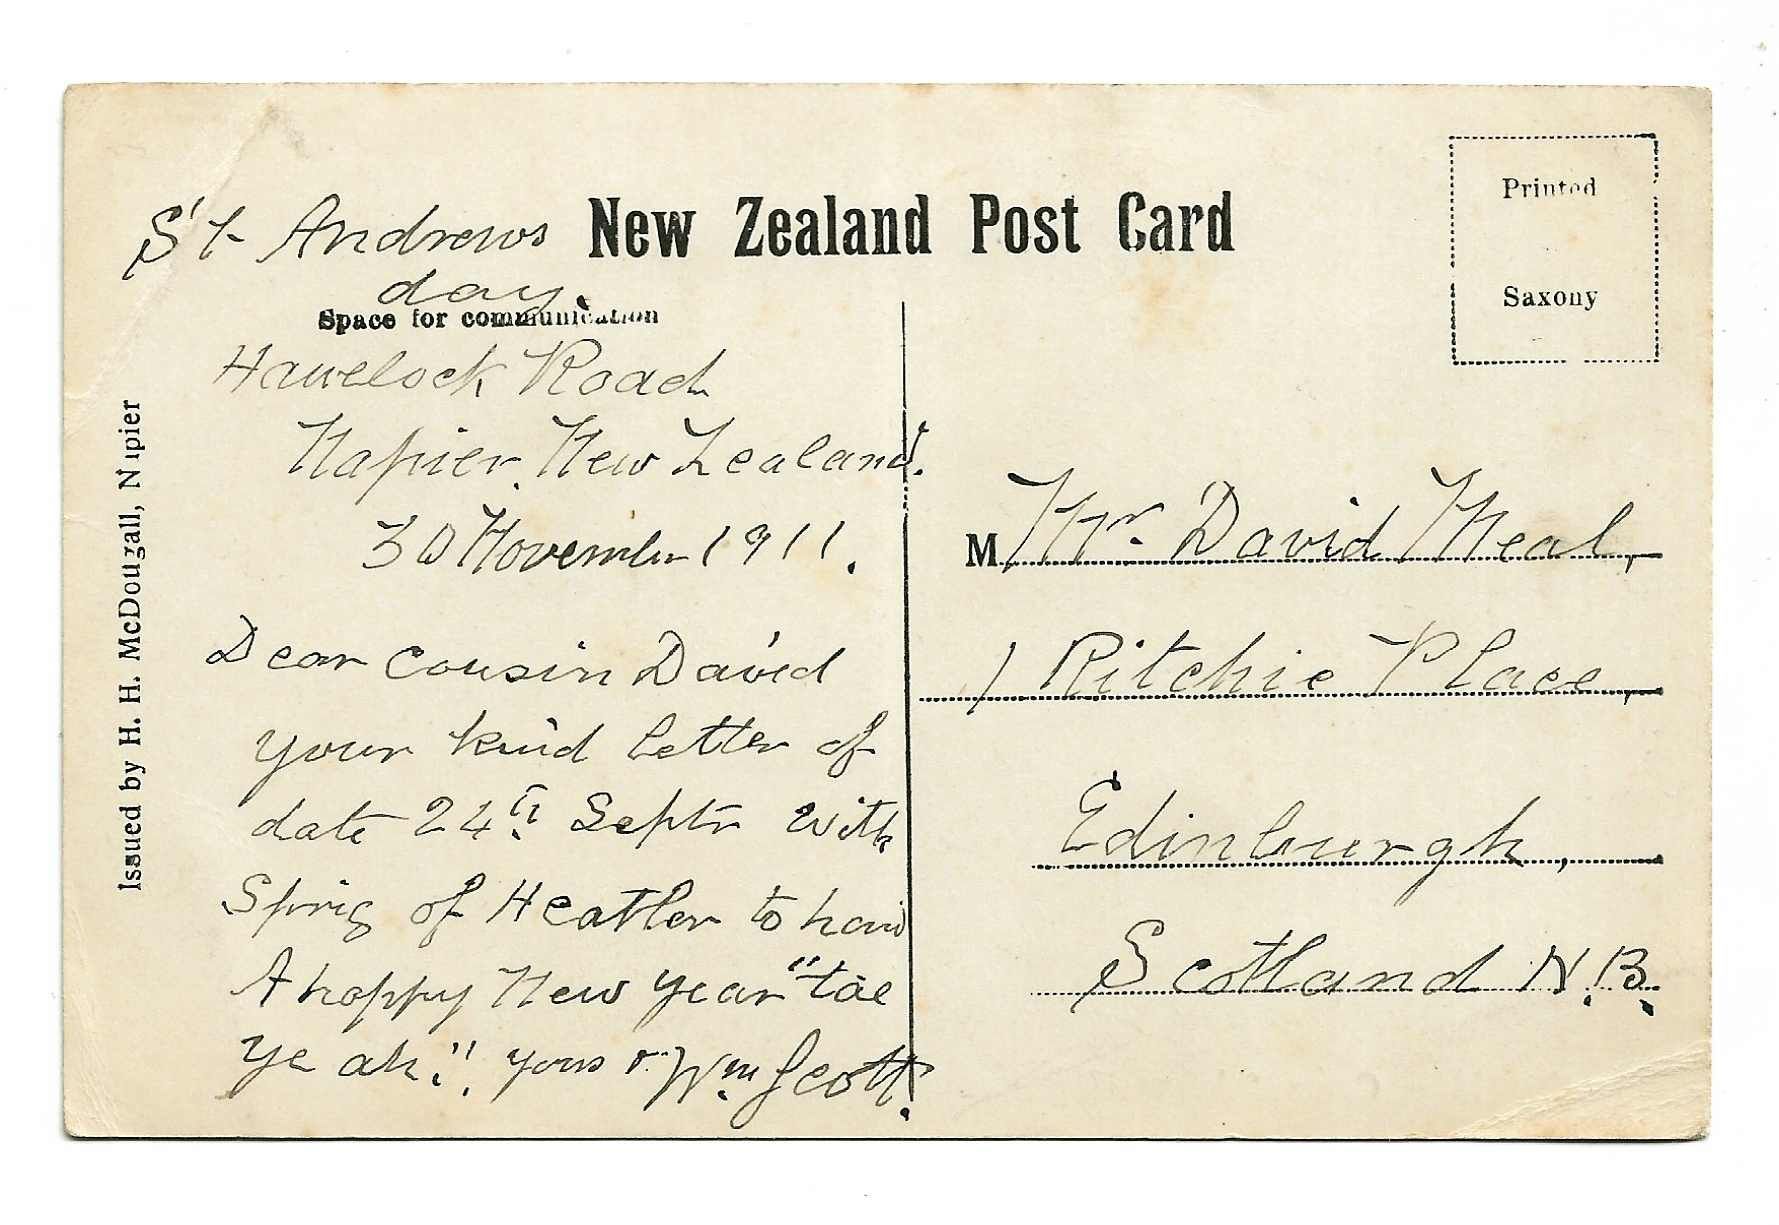 St Andrews
day.
New Zealand Post Card
Printed
Saxony
Space for communication
Issued by H. H. McDougall, Napier
Havelock Road
Napier. New Zealand.
30 November 1911.
Dear Cousin David
your kind letter of
date 24th Septr with
Sprig of Heather to han'
A happy New year "tae
ye ah"! yours r. Wm Scott.
M Mr. David Neal,
1 Ritchie Place,
Edinburgh,
Scotland N.B.